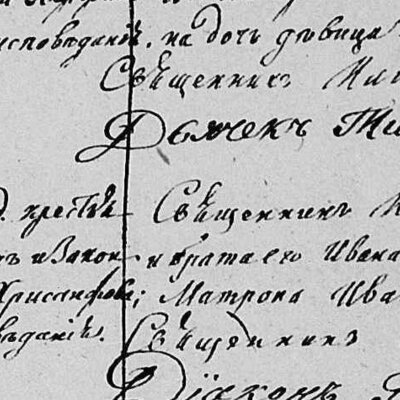 исповѣданій. на дочь дѣвица
Священникъ Ми
Дьячекъ Ти
крестья Священникъ
и Закон и брата его Ивана
Хрисанфова; Матрона Ива
вѣданій. Священникъ
Діаконъ